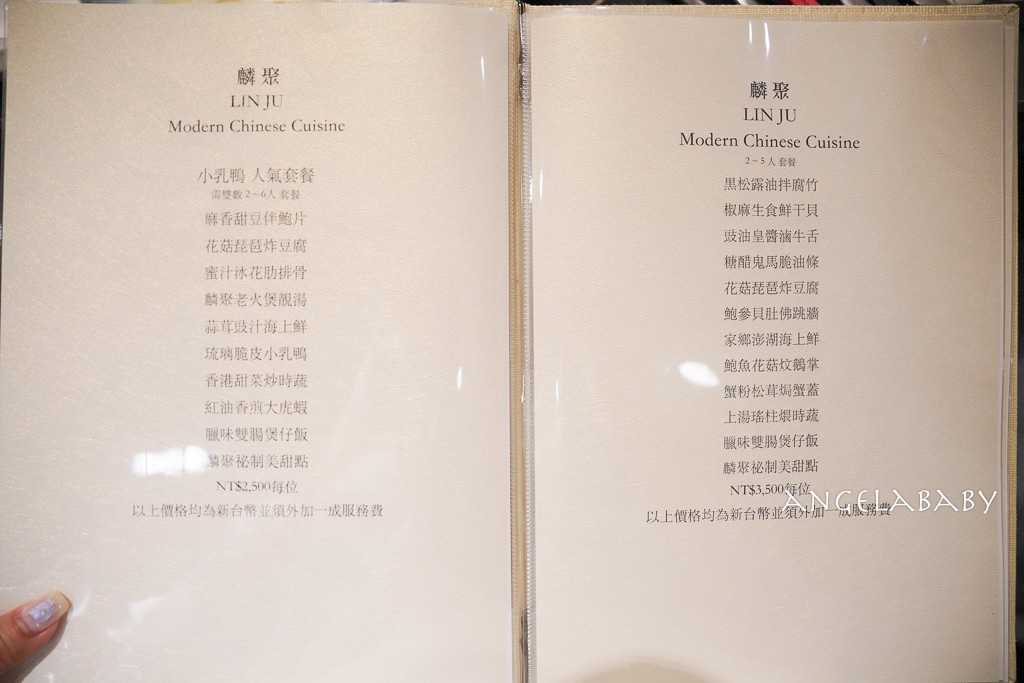 麟聚
LIN JU
Modern Chinese Cuisine
小乳鴨 人氣套餐
需雙數 2～6人 套餐
麻香甜豆伴鮑片
花菇琵琶炸豆腐
蜜汁冰花肋排骨
麟聚老火煲靚湯
蒜茸豉汁海上鮮
琉璃脆皮小乳鴨
香港甜菜炒時蔬
紅油香煎大虎蝦
臘味雙腸煲仔飯
麟聚祕制美甜點
NT$2,500每位
以上價格均為新台幣並須外加一成服務費
麟聚
LIN JU
Modern Chinese Cuisine
2～5人 套餐
黑松露油拌腐竹
椒麻生食鮮干貝
豉油皇醬滷牛舌
糖醋鬼馬脆油條
花菇琵琶炸豆腐
鮑參貝肚佛跳牆
家鄉澎湖海上鮮
鮑魚花菇炆鵝掌
蟹粉松茸焗蟹蓋
上湯瑤柱煨時蔬
臘味雙腸煲仔飯
麟聚祕制美甜點
NT$3,500每位
以上價格均為新台幣並須外加一成服務費
ANGELABABY